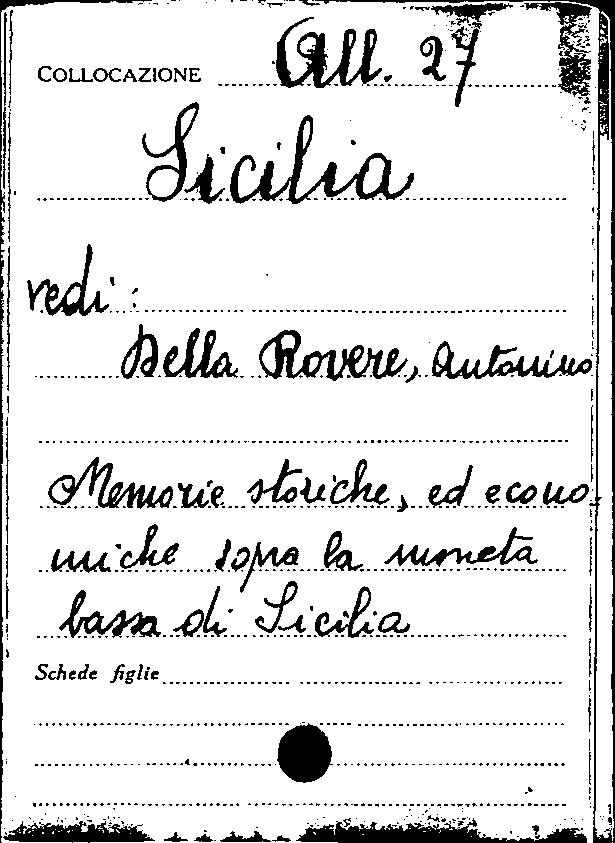 COLLOCAZIONE All. 27
Sicilia
vedi :
Della Rovere, Antonino
Memorie storiche, ed econo-
miche sopra la moneta
bassa di Sicilia
Schede figlie